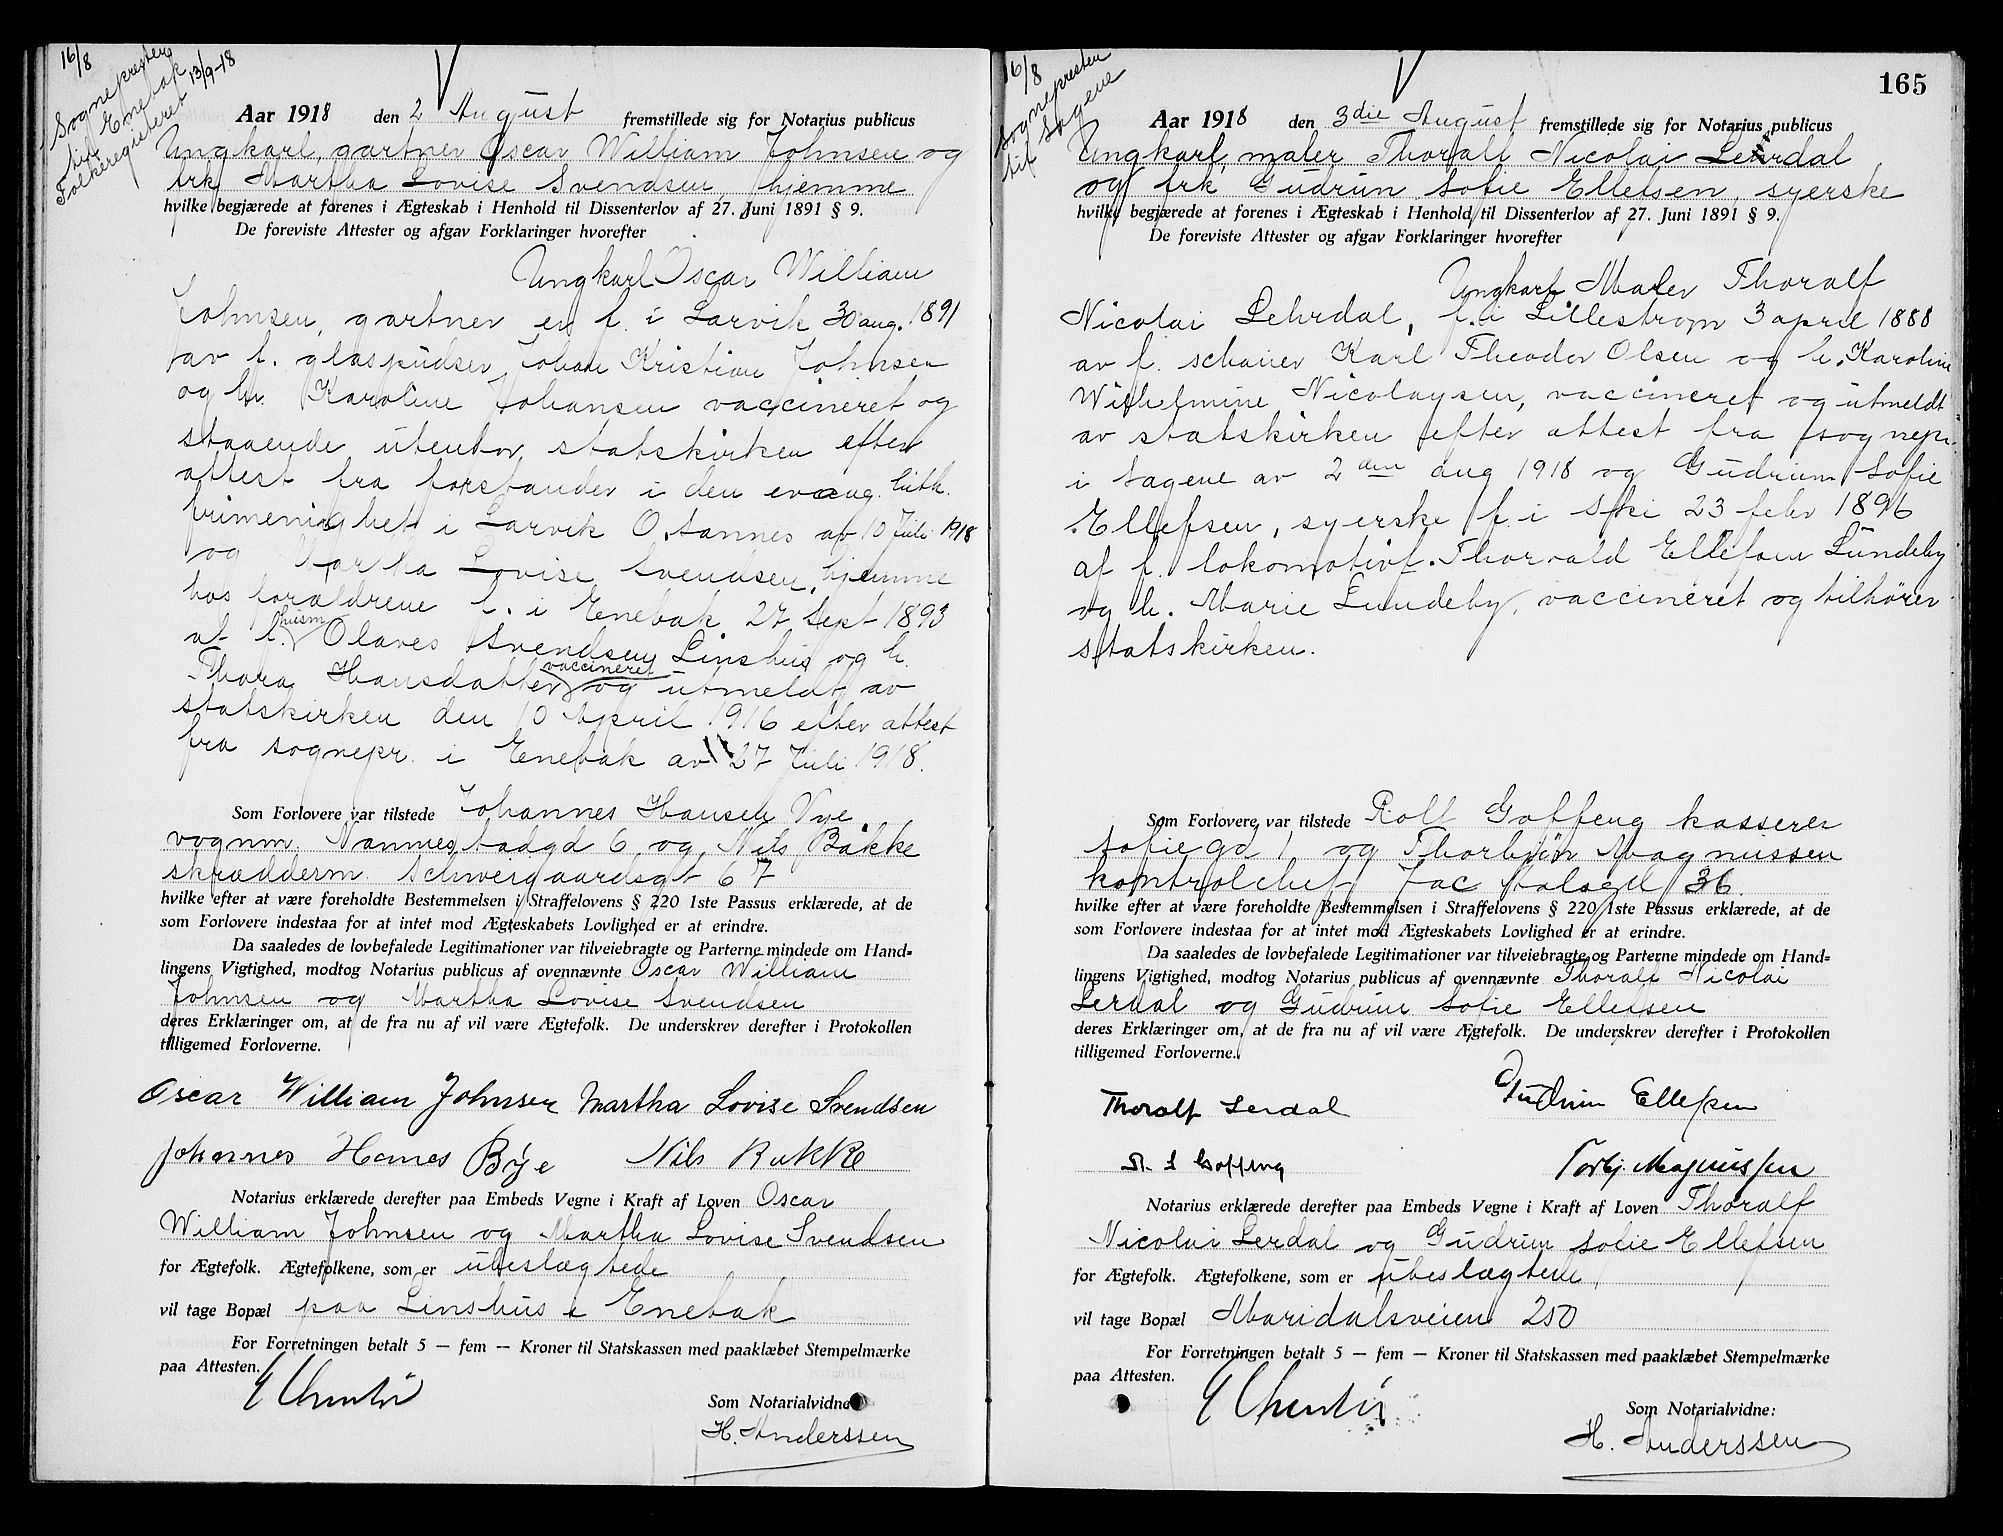 16/8
Sognepresten
til Enebak
Folkeregisteret 13/9-18
Aar 1918 den 2 August fremstillede sig for Notarius publicus
Ungkarl, gartner Oscar William Johnsen og
frk Martha Lovise Svendsen, hjemme
hvilke begjærede at forenes i Ægteskab i Henhold til Dissenterlov af 27. Juni 1891 § 9.
De foreviste Attester og afgav Forklaringer hvorefter
Ungkarl Oscar William
Johnsen, gartner er f. i Larvik 30 aug. 1891
av f. glaspudser Johan Kristian Johnsen
og h. Karoline Johansen vaccineret og
staaende utenfor statskirken efter
attest fra forstander i den evang. luth.
frimenighet i Larvik O. Sannes av 10 Juli 1918
og Martha Lovise Svendsen, hjemme
hos forældrene f. i Enebak 27 Sept 1893
af f. husm Olaves Svendsen Linshus og h.
Thora Hansdatter vaccineret og utmeldt av
statskirken den 10 April 1916 efter attest
fra sognepr. i Enebak av 27 Juli 1918.
Som Forlovere var tilstede Johannes Hansen Vye
vognm. Nannestadgd 6 og Nils Bakke
skrædderm. Schweigaardsgt 67
hvilke efter at være foreholdte Bestemmelsen i Straffelovens § 220 1ste Passus erklærede, at de
som Forlovere indestaa for at intet mod Ægteskabets Lovlighed er at erindre.
Da saaledes de lovbefalede Legitimationer var tilveiebragte og Parterne mindede om Hand-
lingens Vigtighed, modtog Notarius publicus af ovennævnte Oscar William
Johnsen og Martha Lovise Svendsen
deres Erklæringer om, at de fra nu af vil være Ægtefolk. De underskrev derefter i Protokollen
tilligemed Forloverne.
Oscar William Johnsen Martha Lovise Svendsen
Johannes Hanes Bye Nils Bakke
Notarius erklærede derefter paa Embeds Vegne i Kraft af Loven Oscar
William Johnsen og Martha Lovise Svendsen
for Ægtefolk. Ægtefolkene, som er ubeslægtede
vil tage Bopæl paa Linshus i Enebak
For Forretningen betalt 5 — fem — Kroner til Statskassen med paaklæbet Stempelmærke
paa Attesten.
Som Notarialvidne
H. Anderssen
165
16/8
Sognepresten
til Sagene
Aar 1918 den 3die August fremstillede sig for Notarius publicus
Ungkarl, maler Thoralf Nicolai Lerdal
og frk Gudrun Sofie Ellefsen, syerske
hvilke begjærede at forenes i Ægteskab i Henhold til Dissenterlov af 27. Juni 1891 § 9.
De foreviste Attester og afgav Forklaringer hvorefter
Ungkarl Maler Thoralf
Nicolai Lehrdal, f. i Lillestrøm 3 april 1888
av f. schauer Karl Theodor Olsen og h. Karoline
Wilhelmine Nicolaysen, vaccineret og utmeldt
av statskirken efter attest fra sognepr.
i Sagene av 2den aug 1918 og Gudrun Sofie
Ellefsen, syerske f. i Ski 23 febr 1896
af f. lokomotivf. Thorvald Ellefsen Lundeby
og h. Marie Lundeby, vaccineret og tilhører
statskirken.
Som Forlovere var tilstede Rolf Goffeng kasserer
Sofiegd 1 og Thorbjørn Magnussen
kontrolchef Jac Aalsgd 36.
hvilke efter at være foreholdte Bestemmelsen i Straffelovens § 220 1ste Passus erklærede, at de
som Forlovere indestaa for at intet mod Ægteskabets Lovlighed er at erindre.
Da saaledes de lovbefalede Legitimationer var tilveiebragte og Parterne mindede om Hand-
lingens Vigtighed, modtog Notarius publicus af ovennævnte Thoralf Nicolai
Lerdal og Gudrun Sofie Ellefsen
deres Erklæringer om, at de fra nu af vil være Ægtefolk. De underskrev derefter i Protokollen
tilligemed Forloverne.
Thoralf Lerdal Gudrun Ellefsen
R. S Goffeng Torbj. Magnussen
Notarius erklærede derefter paa Embeds Vegne i Kraft af Loven Thoralf
Nicolai Lerdal og Gudrun Sofie Ellefsen
for Ægtefolk. Ægtefolkene, som er ubeslægtede
vil tage Bopæl Maridalsveien 250
For Forretningen betalt 5 — fem — Kroner til Statskassen med paaklæbet Stempelmærke
paa Attesten.
Som Notarialvidne:
H. Anderssen